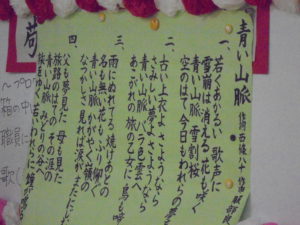 青い山脈 作詞 西條八十 作曲 服部良
一、若くあかるい 歌声に
雪崩は消える 花も咲く
青い山脈 雪割桜
空のはて 今日もわれらの夢
二、古い上衣よ さようなら
さみしい夢よ さようなら
青い山脈 バラ色雲へ
あこがれの 旅の乙女に 鳥も啼
三、雨にぬれてる 焼けあとの
名も無い花も ふり仰ぐ
青い山脈 かがやく嶺の
なつかしさ 見れば涙が またにじ
四、父も夢見た 母も見た
旅路のはての その涯の
青い山脈 みどりの谷へ
旅をゆく 若いわれらに 鐘が鳴る
箱の中
職員に
歌